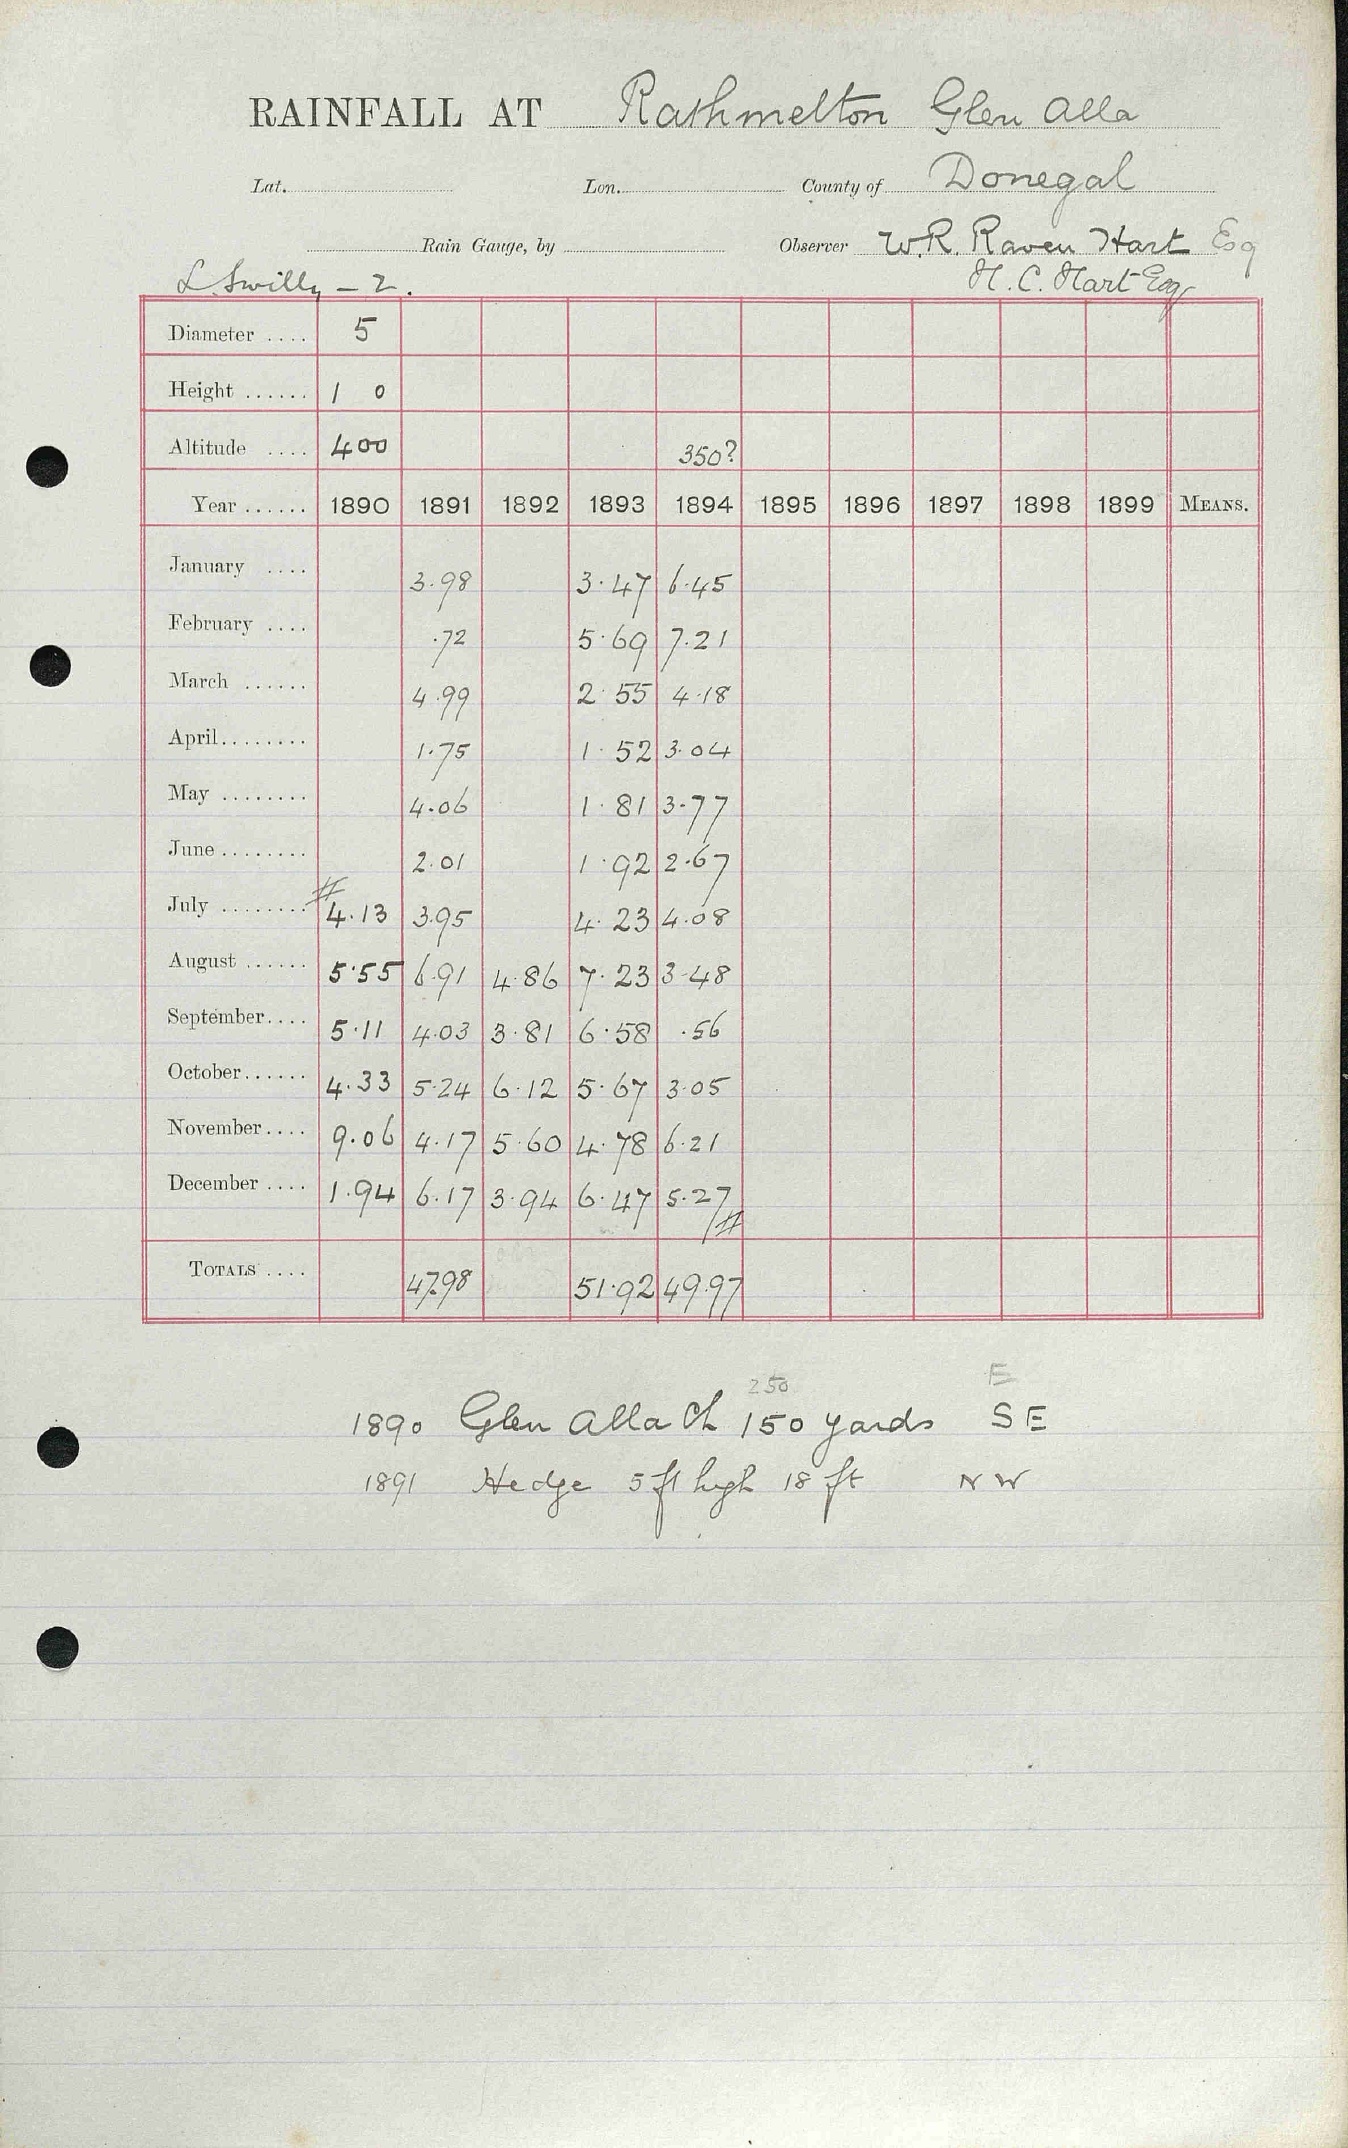 RAINFALL AT Rathmelton Glen Alla
Lat. Lon. County of Donegal
Rain Gauge, by Observer W.R. Raven Hart Esq
L. Swilly - 2. H. C. Hart Esq
Diameter .... 5
Height ...... 1 0
Altitude .... 400 350?
Year ...... 1890 1891 1892 1893 1894 1895 1896 1897 1898 1899 MEANS.
January .... 3.98 3.47 6.45
February .... .72 5.69 7.21
March ...... 4.99 2.55 4.18
April ........ 1.75 1.52 3.04
May ........ 4.06 1.81 3.77
June ........ 2.01 1.92 2.67
July ........ # 4.13 3.95 4.23 4.08
August ...... 5.55 6.91 4.86 7.23 3.48
September .... 5.11 4.03 3.81 6.58 .56
October ...... 4.33 5.24 6.12 5.67 3.05
November .... 9.06 4.17 5.60 4.78 6.21
December .... 1.94 6.17 3.94 6.47 5.27 #
TOTALS .... 47.98 51.92 49.97
250 E
1890 Glen Alla Ch 150 yards SE
1891 Hedge 5 ft high 18 ft NW